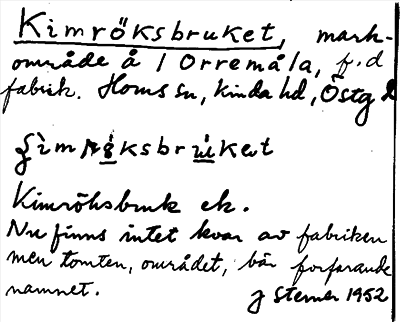 Kimröksbruket, mark-
område å 1 Orremåla, f.d
fabrik. Horns sn, Kinda hd, Östg l
ksbr
Kimröksbruk ek.
Nu finns intet kvar av fabriken
men tomten, området, bär fortfarande
namnet. J Sterner 1952